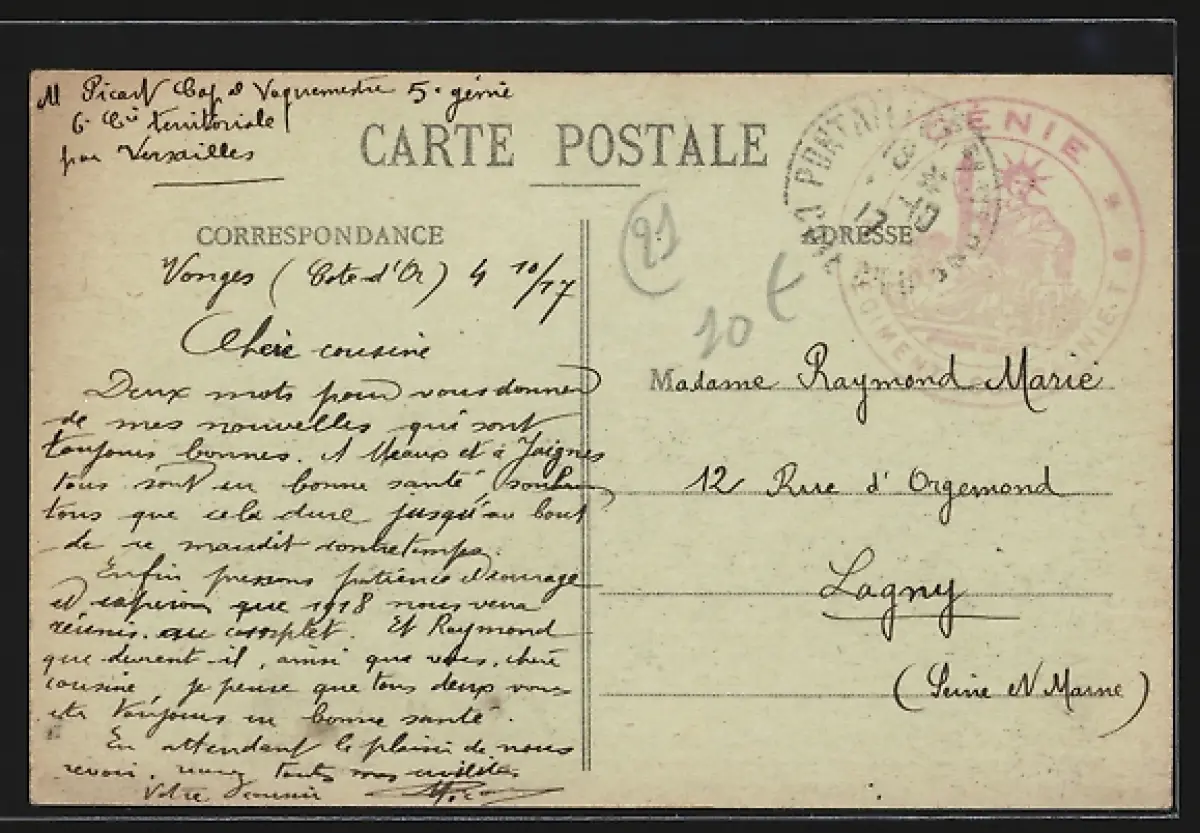 M Picart Cap al Vaguemestre 5e génie
6e Cie territoriale
par Versailles
CARTE POSTALE
CORRESPONDANCE
Vonges (Cote-d'Or) 4 10/17
Chère cousine
Deux mots pour vous donner
de mes nouvelles qui sont
toujours bonnes. A Meaux et à Jaignes
tous sont en bonne santé,
tous que cela dure jusqu'au bout
de ce maudit contretemps.
Enfin prenons patience et courage
et espérons que 1918 nous verra
réunis au complet. Et Raymond
que devient-il, ainsi que vous, chère
cousine, je pense que tous deux vous
êtes toujours en bonne santé.
En attendant le plaisir de nous
revoir, toutes mes
Votre cousin
21
10 €
ADRESSE
GÉNIE
Madame Raymond Marie
12 Rue d'Orgemond
Lagny
(Seine et Marne)